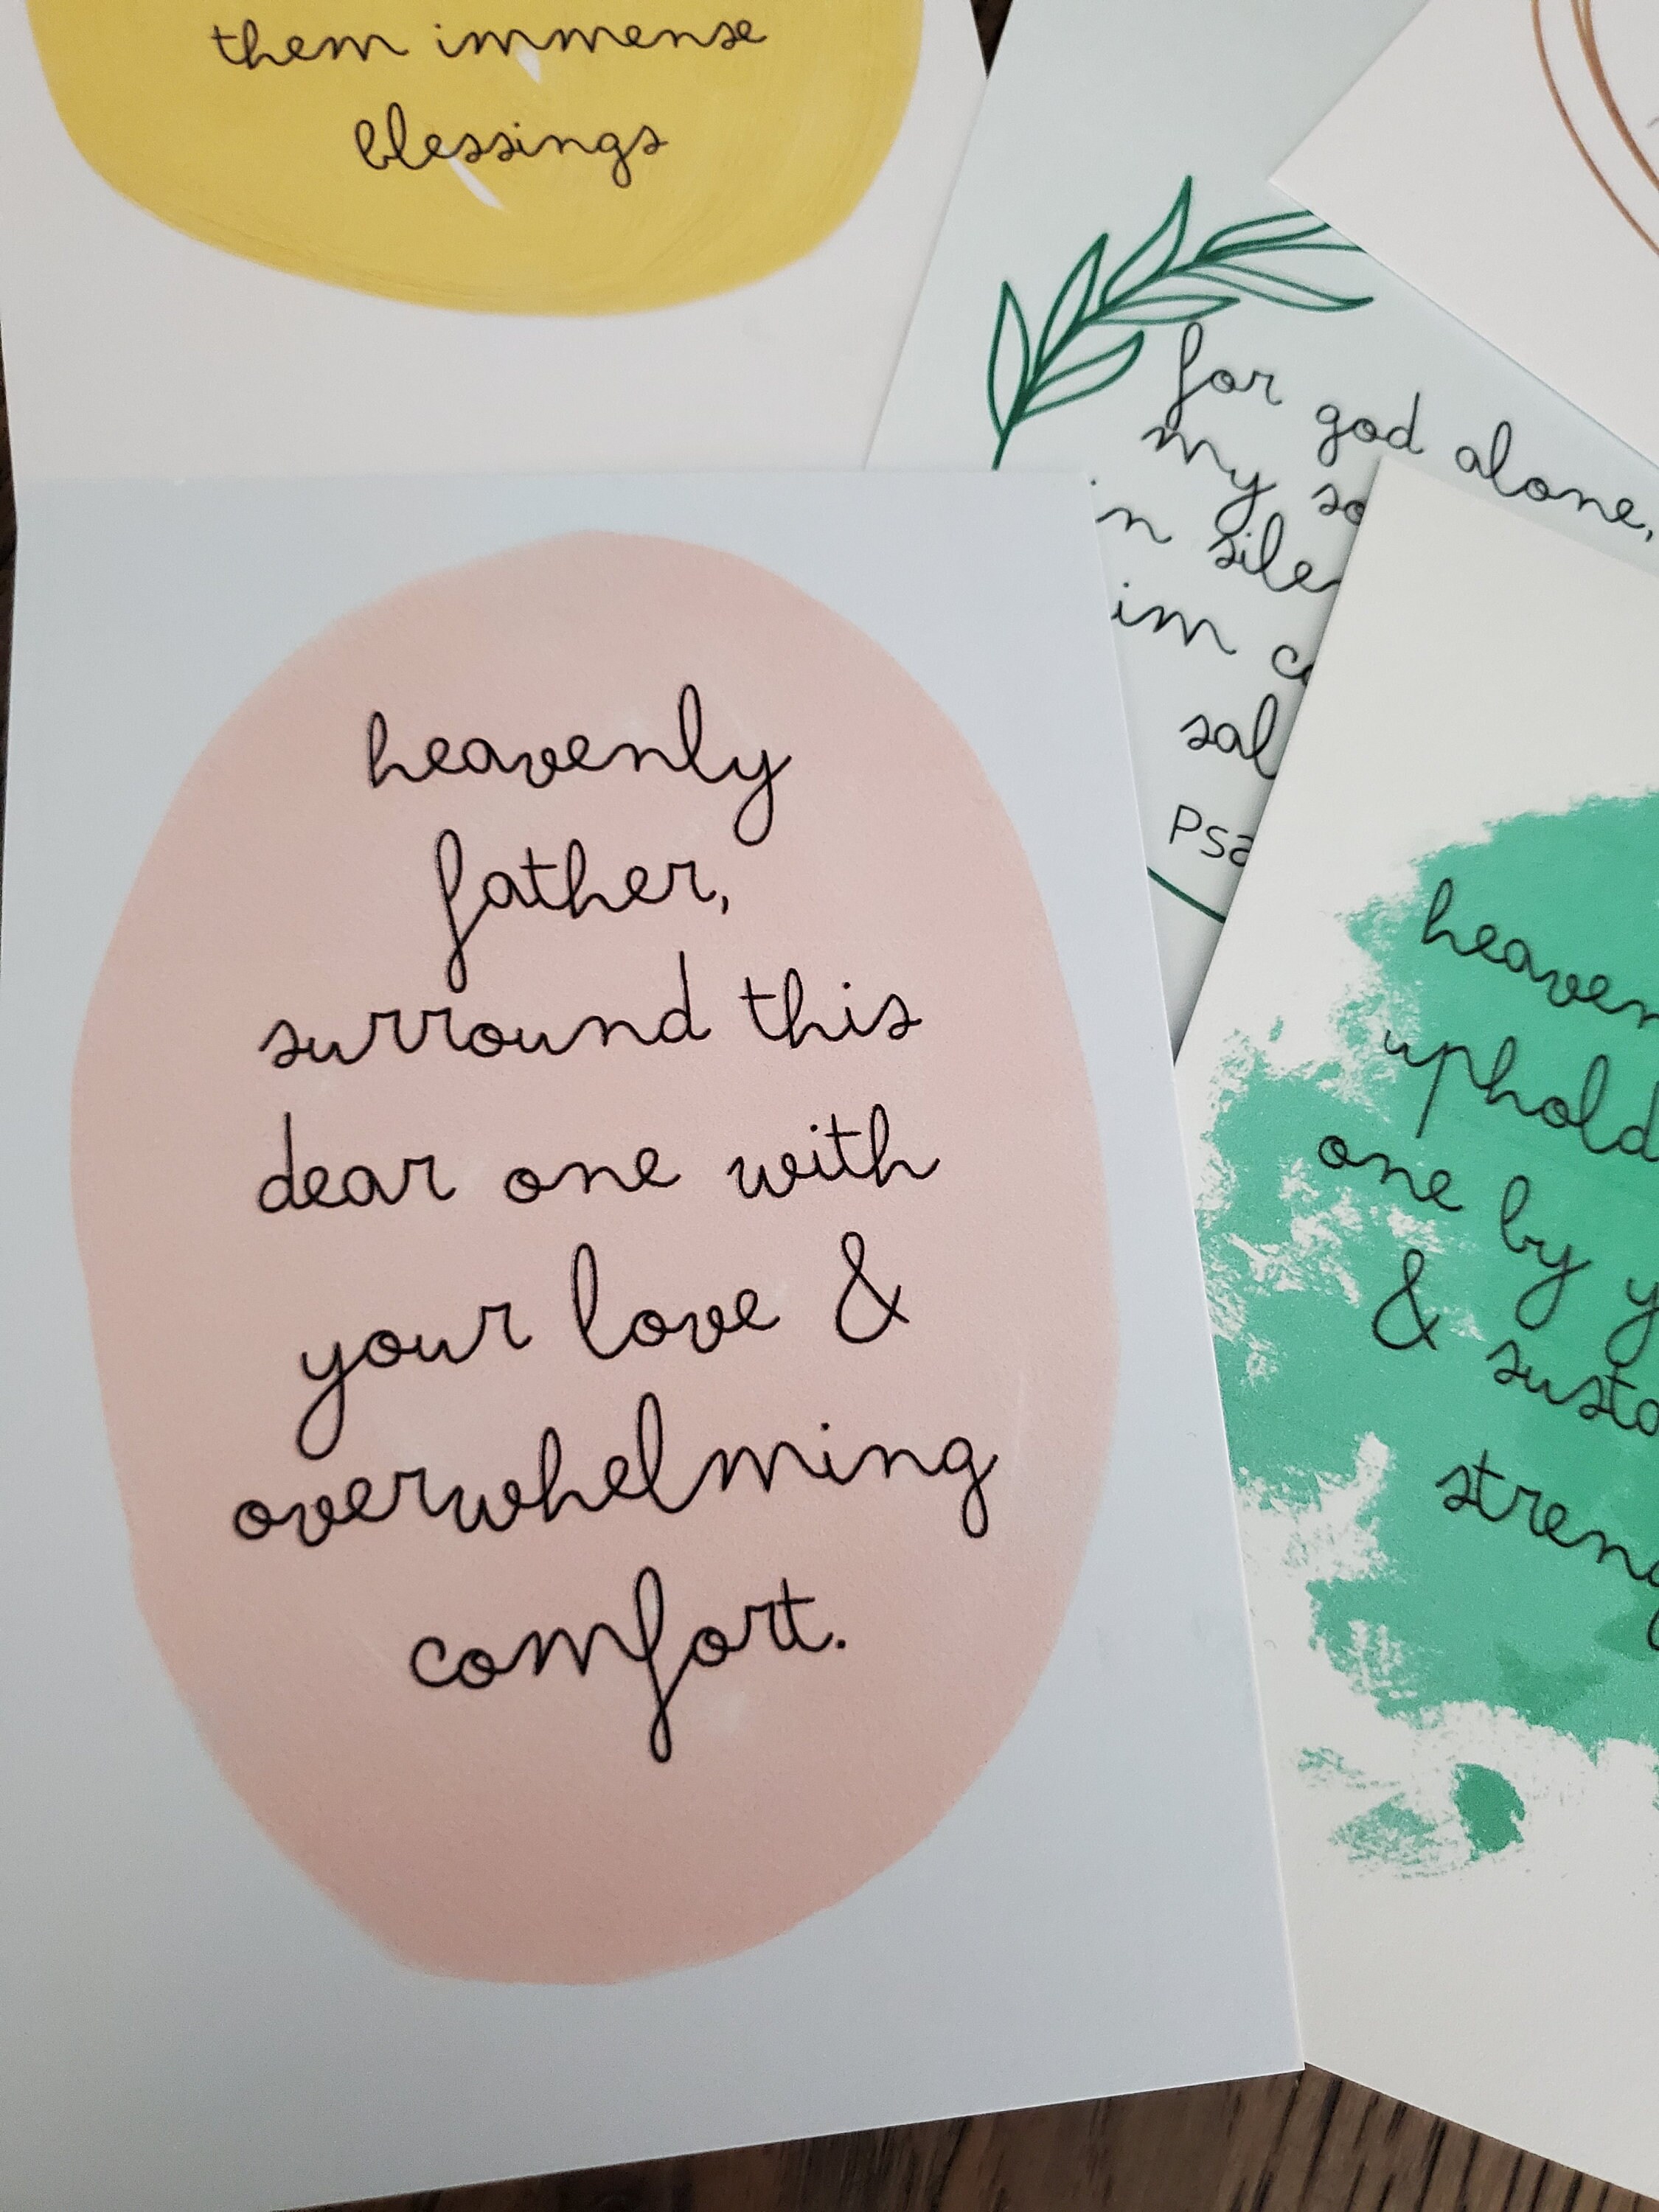 them immense
blessings
for god alone,
my so
in silen
im c
sal
Psa
heavenly
father,
surround this
dear one with
your love &
overwhelming
comfort.
heaven
uphold
one by y
& susta
streng